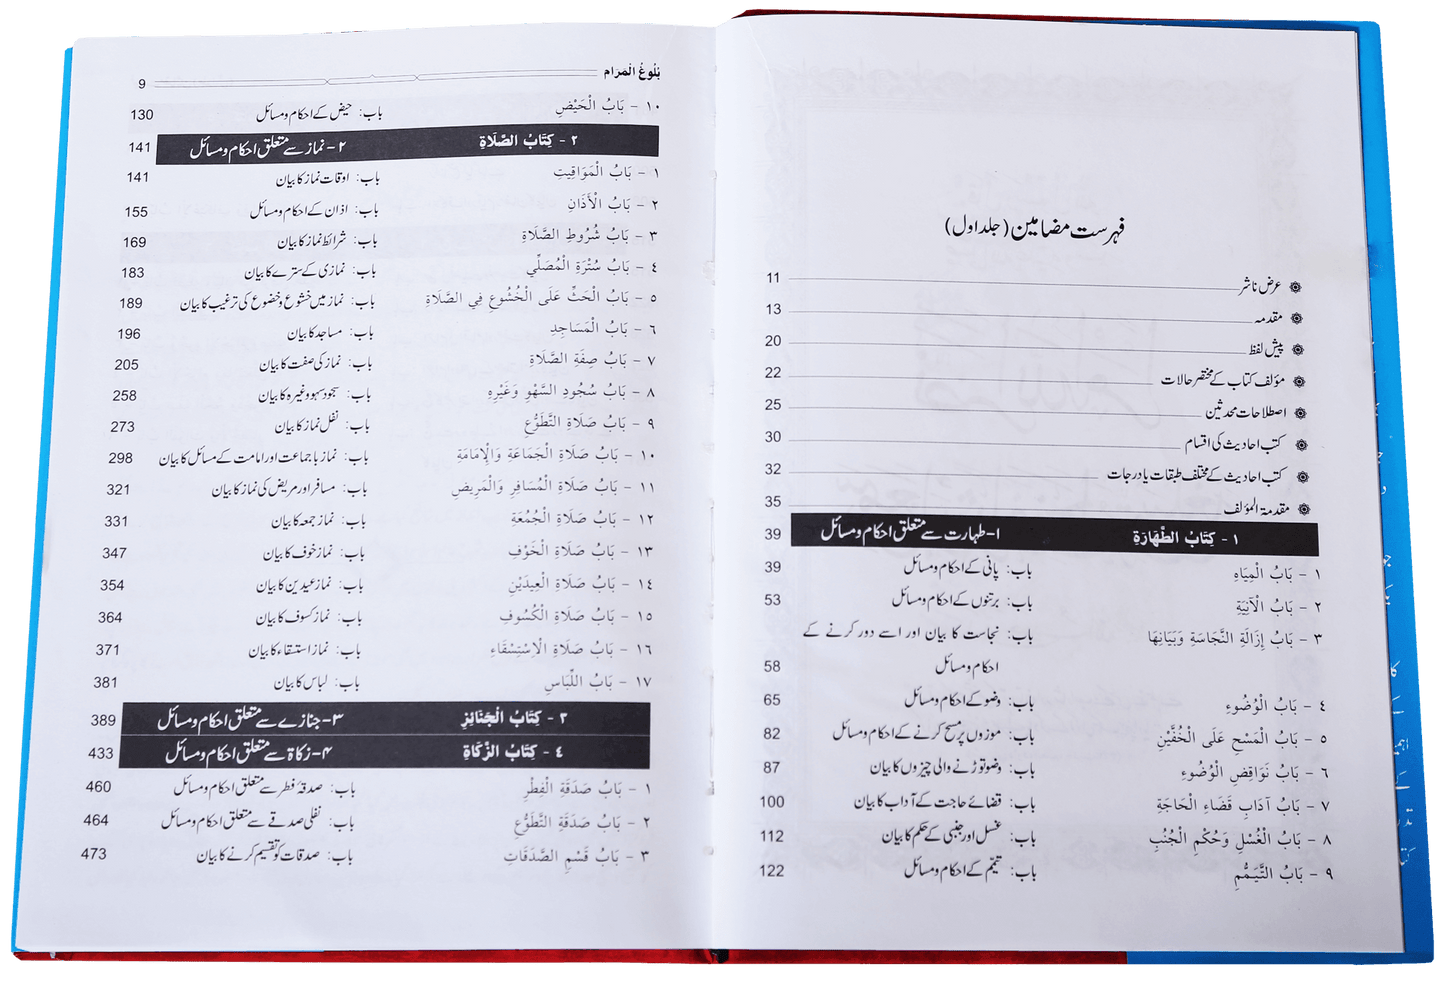 فہرست مضامین (جلد اول)
عرض ناشر 11
مقدمہ 13
پیش لفظ 20
مؤلف کتاب کے مختصر حالات 22
اصطلاحات محدثین 25
کتب احادیث کی اقسام 30
کتب احادیث کے مختلف طبقات یا درجات 32
مقدمۃ المؤلف 35
١ - كِتَابُ الطَّهَارَةِ ۱- طہارت سے متعلق احکام و مسائل 39
١ - بَابُ الْمِيَاهِ باب: پانی کے احکام و مسائل 39
٢ - بَابُ الْآنِيَةِ باب: برتنوں کے احکام و مسائل 53
٣ - بَابُ إِزَالَةِ النَّجَاسَةِ وَبَيَانِهَا باب: نجاست کا بیان اور اسے دور کرنے کے
احکام و مسائل 58
٤ - بَابُ الْوُضُوءِ باب: وضو کے احکام و مسائل 65
٥ - بَابُ الْمَسْحِ عَلَى الْخُفَّيْنِ باب: موزوں پر مسح کرنے کے احکام و مسائل 82
٦ - بَابُ نَوَاقِضِ الْوُضُوءِ باب: وضو توڑنے والی چیزوں کا بیان 87
٧ - بَابُ آدَابِ قَضَاءِ الْحَاجَةِ باب: قضائے حاجت کے آداب کا بیان 100
٨ - بَابُ الْغُسْلِ وَحُكْمِ الْجُنُبِ باب: غسل اور جنبی کے حکم کا بیان 112
٩ - بَابُ التَّيَمُّمِ باب: تیمّم کے احکام و مسائل 122
بُلُوغُ الْمَرَام 9
١٠ - بَابُ الْحَيْضِ باب: حیض کے احکام و مسائل 130
٢ - كِتَابُ الصَّلَاةِ ۲- نماز سے متعلق احکام و مسائل 141
١ - بَابُ الْمَوَاقِيتِ باب: اوقات نماز کا بیان 141
٢ - بَابُ الْأَذَانِ باب: اذان کے احکام و مسائل 155
٣ - بَابُ شُرُوطِ الصَّلَاةِ باب: شرائط نماز کا بیان 169
٤ - بَابُ سُتْرَةِ الْمُصَلِّي باب: نمازی کے سترے کا بیان 183
٥ - بَابُ الْحَثِّ عَلَى الْخُشُوعِ فِي الصَّلَاةِ باب: نماز میں خشوع و خضوع کی ترغیب کا بیان 189
٦ - بَابُ الْمَسَاجِدِ باب: مساجد کا بیان 196
٧ - بَابُ صِفَةِ الصَّلَاةِ باب: نماز کی صفت کا بیان 205
٨ - بَابُ سُجُودِ السَّهْوِ وَغَيْرِهِ باب: سجود سہو وغیرہ کا بیان 258
٩ - بَابُ صَلَاةِ التَّطَوُّعِ باب: نفل نماز کا بیان 273
١٠ - بَابُ صَلَاةِ الْجَمَاعَةِ وَالْإِمَامَةِ باب: نماز باجماعت اور امامت کے مسائل کا بیان 298
١١ - بَابُ صَلَاةِ الْمُسَافِرِ وَالْمَرِيضِ باب: مسافر اور مریض کی نماز کا بیان 321
١٢ - بَابُ صَلَاةِ الْجُمُعَةِ باب: نماز جمعہ کا بیان 331
١٣ - بَابُ صَلَاةِ الْخَوْفِ باب: نماز خوف کا بیان 347
١٤ - بَابُ صَلَاةِ الْعِيدَيْنِ باب: نماز عیدین کا بیان 354
١٥ - بَابُ صَلَاةِ الْكُسُوفِ باب: نماز کسوف کا بیان 364
١٦ - بَابُ صَلَاةِ الْاِسْتِسْقَاءِ باب: نماز استسقاء کا بیان 371
١٧ - بَابُ اللِّبَاسِ باب: لباس کا بیان 381
٣ - كِتَابُ الْجَنَائِزِ ۳- جنازے سے متعلق احکام و مسائل 389
٤ - كِتَابُ الزَّكَاةِ ۴- زکاۃ سے متعلق احکام و مسائل 433
١ - بَابُ صَدَقَةِ الْفِطْرِ باب: صدقۂ فطر سے متعلق احکام و مسائل 460
٢ - بَابُ صَدَقَةِ التَّطَوُّعِ باب: نفلی صدقے سے متعلق احکام و مسائل 464
٣ - بَابُ قَسْمِ الصَّدَقَاتِ باب: صدقات کو تقسیم کرنے کا بیان 473